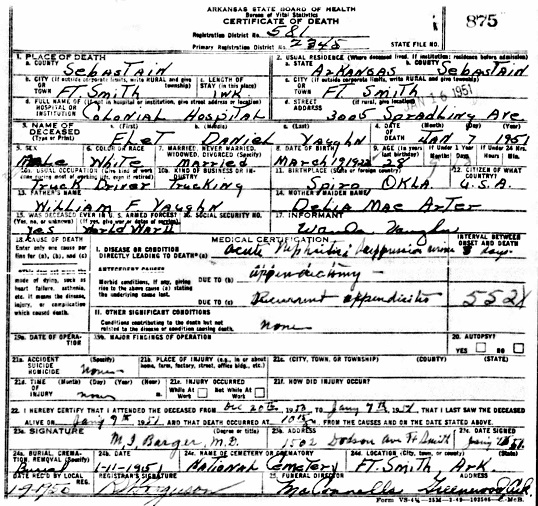 ARKANSAS STATE BOARD OF HEALTH
Bureau of Vital Statistics
CERTIFICATE OF DEATH
875
Registration District No. 581
Primary Registration District No. 2345
STATE FILE NO.
1. PLACE OF DEATH
a. COUNTY Sebastain
2. USUAL RESIDENCE (Where deceased lived. If institution: residence before admission)
a. STATE Arkansas b. COUNTY Sebastain
b. CITY (If outside corporate limits, write RURAL and give township) OR TOWN Ft. Smith
c. LENGTH OF STAY (in this place) 1 wk.
c. CITY (If outside corporate limits, write RURAL and give township) OR TOWN Ft Smith
JAN 16 1951
d. FULL NAME OF (If not in hospital or institution, give street address or location) HOSPITAL OR INSTITUTION Colonial Hospital
d. STREET ADDRESS (If rural, give location) 3005 Spradling Ave
3. NAME OF DECEASED (Type or Print)
a. (First) b. (Middle) Daniel c. (Last) Vaughn
4. DATE OF DEATH (Month) (Day) (Year) Jan 9 1951
5. SEX Male
6. COLOR OR RACE White
7. MARRIED, NEVER MARRIED, WIDOWED, DIVORCED (Specify) Married
8. DATE OF BIRTH March 19 1922
9. AGE (In years last birthday) 28
If Under 1 Year Months Days
If Under 24 Hrs. Hours Min.
10a. USUAL OCCUPATION (Give kind of work done during most of working life, even if retired) Truck Driver
10b. KIND OF BUSINESS OR INDUSTRY Trucking
11. BIRTHPLACE (State or foreign country) Spiro Okla.
12. CITIZEN OF WHAT COUNTRY? U.S.A.
13. FATHER'S NAME William F. Vaughn
14. MOTHER'S MAIDEN NAME Delia Mac Arter
15. WAS DECEASED EVER IN U.S. ARMED FORCES? (Yes, no, or unknown) (If yes, give war or dates of service) Yes World War II
16. SOCIAL SECURITY NO.
17. INFORMANT Wanda Vaughn
18. CAUSE OF DEATH
Enter only one cause per line for (a), (b), and (c)
MEDICAL CERTIFICATION
INTERVAL BETWEEN ONSET AND DEATH
I. DISEASE OR CONDITION DIRECTLY LEADING TO DEATH (a) Acute Nephritis Suppression urine days
ANTECEDENT CAUSES
mode of dying, such as heart failure, asthma, etc. It means the disease, injury, or complication which caused death.
Morbid conditions, if any, giving rise to the above cause (a) stating the underlying cause last.
DUE TO (b) appendectomy
DUE TO (c) Recurrent appendicitis
552X
II. OTHER SIGNIFICANT CONDITIONS
Conditions contributing to the death but not related to the disease or condition causing death. None
19a. DATE OF OPERATION
19b. MAJOR FINDINGS OF OPERATION
20. AUTOPSY? YES NO
21a. ACCIDENT SUICIDE HOMICIDE (Specify) none
21b. PLACE OF INJURY (e.g., in or about home, farm, factory, street, office bldg., etc.)
21c. (CITY, TOWN, OR TOWNSHIP) (COUNTY) (STATE)
21d. TIME OF INJURY (Month) (Day) (Year) (Hour)
21e. INJURY OCCURRED While At Work Not While At Work
21f. HOW DID INJURY OCCUR?
22. I HEREBY CERTIFY THAT I ATTENDED THE DECEASED FROM Dec 20th 1950 TO Jany 9th 1951, THAT I LAST SAW THE DECEASED
ALIVE ON Jany 9th 1951 AND THAT DEATH OCCURRED AT FROM THE CAUSES AND ON THE DATE STATED ABOVE.
23a. SIGNATURE (Degree or title) M. J. Barger, M.D.
23b. ADDRESS 1502 Dodson Ave Ft Smith
23c. DATE SIGNED
24a. BURIAL, CREMATION, REMOVAL (Specify) Burial
24b. DATE 1-11-1951
24c. NAME OF CEMETERY OR CREMATORY National Cemetery
24d. LOCATION (City, town, or county) (State) Ft. Smith, Ark.
DATE REC'D BY LOCAL REG. 1-9-1950
REGISTRAR'S SIGNATURE
25. FUNERAL DIRECTOR McConnells
ADDRESS Greenwood Ark.